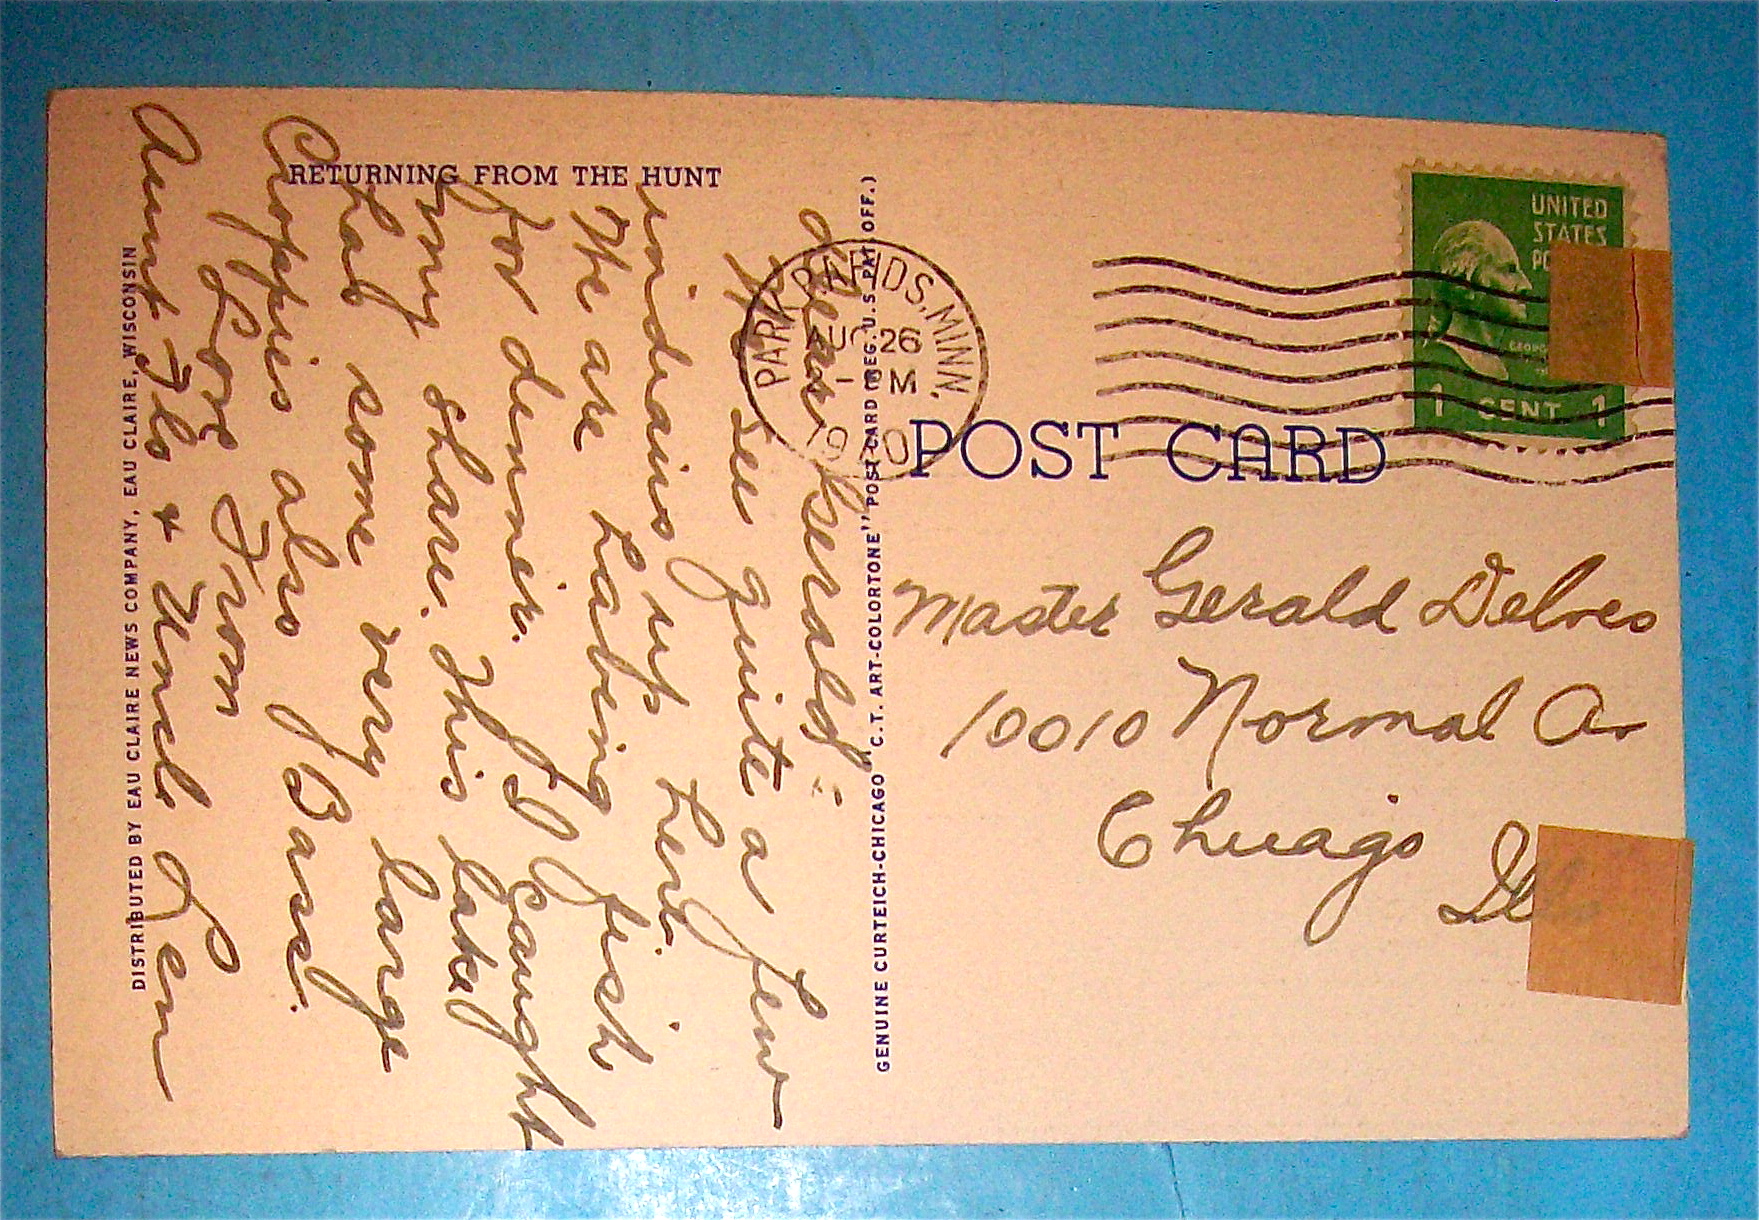 RETURNING FROM THE HUNT
Dear Gerald:
We see quite a few
indians up here.
We are having fish
for dinner. I caught
my share. This lake
has some very large
Croppies also Bass.
Love From
Aunt Flo + Uncle Len
DISTRIBUTED BY EAU CLAIRE NEWS COMPANY, EAU CLAIRE, WISCONSIN
GENUINE CURTEICH-CHICAGO "C.T. ART-COLORTONE" POST CARD (REG. U.S. PAT. OFF.)
PARK RAPIDS, MINN.
26
M
UNITED
STATES
1 CENT 1
POST CARD
Master Gerald Delves
10010 Normal Av
Chicago
Ill